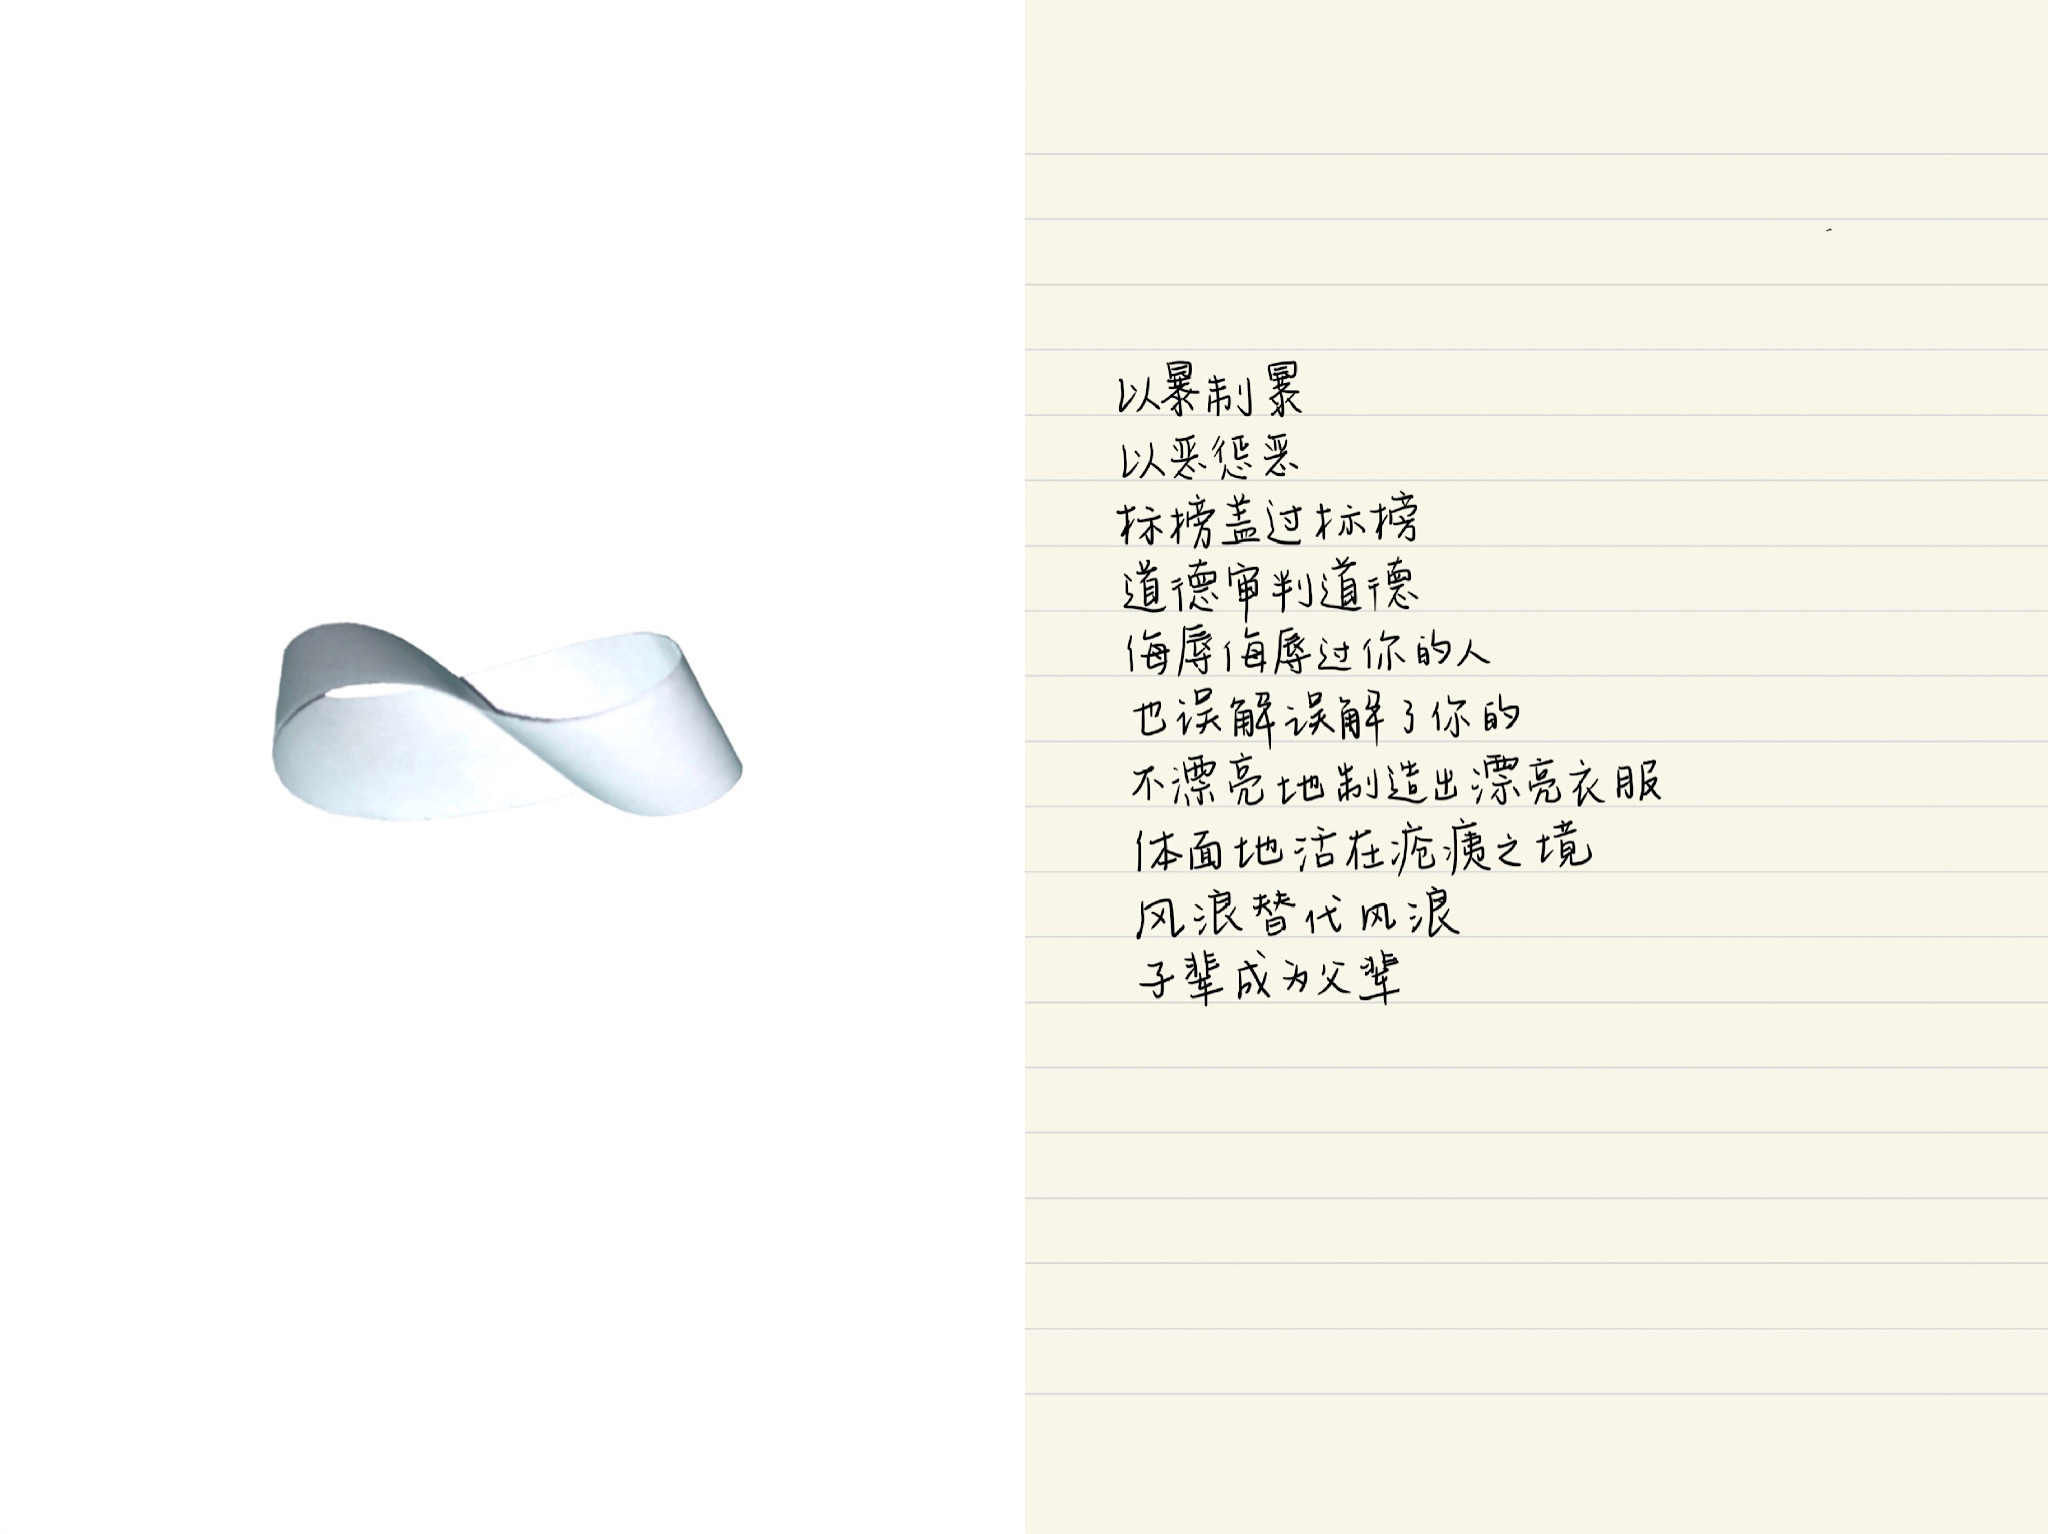 以暴制暴
以恶惩恶
标榜盖过标榜
道德审判道德
侮辱侮辱过你的人
也误解误解了你的
不漂亮地制造出漂亮衣服
体面地活在疮痍之境
风浪替代风浪
子辈成为父辈